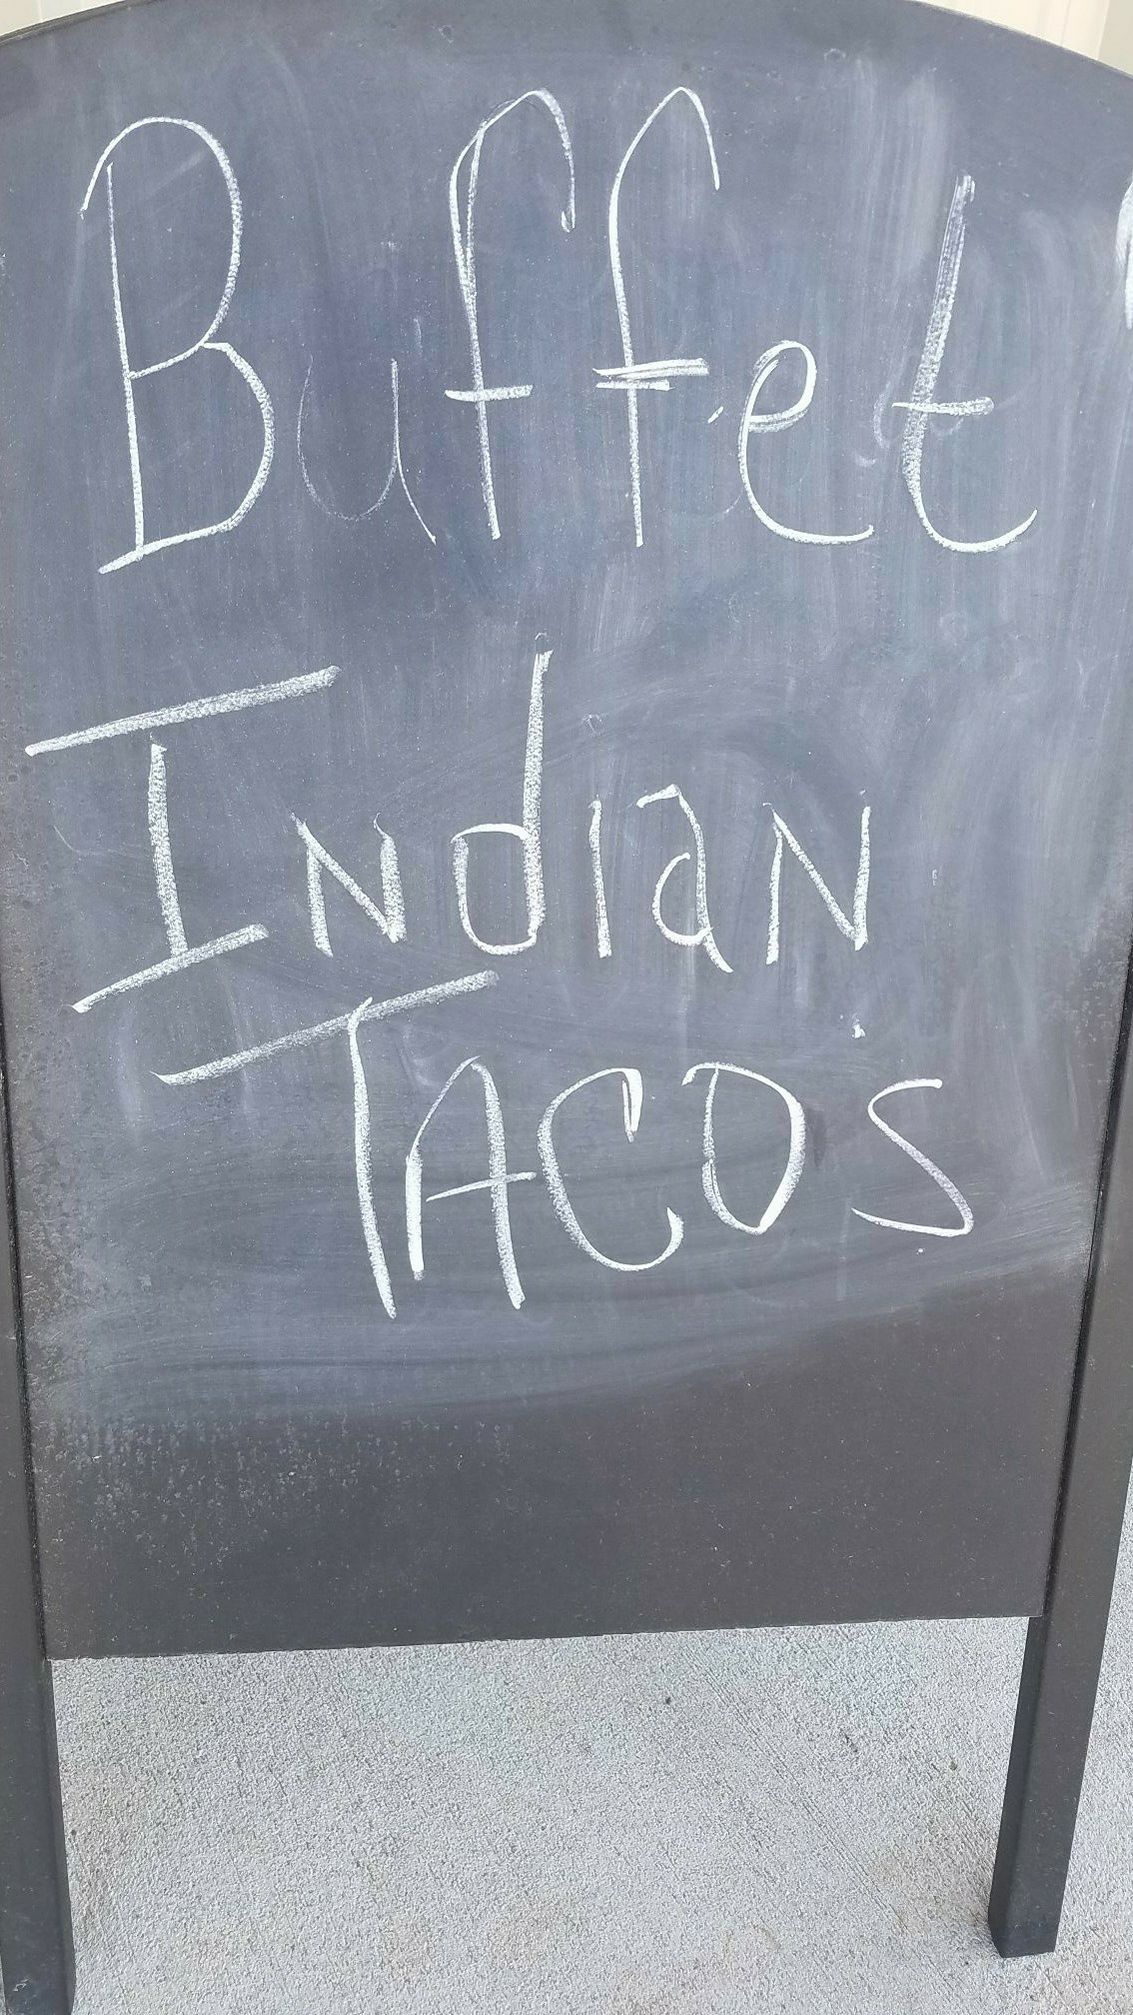 Buffet
Indian
Tacos